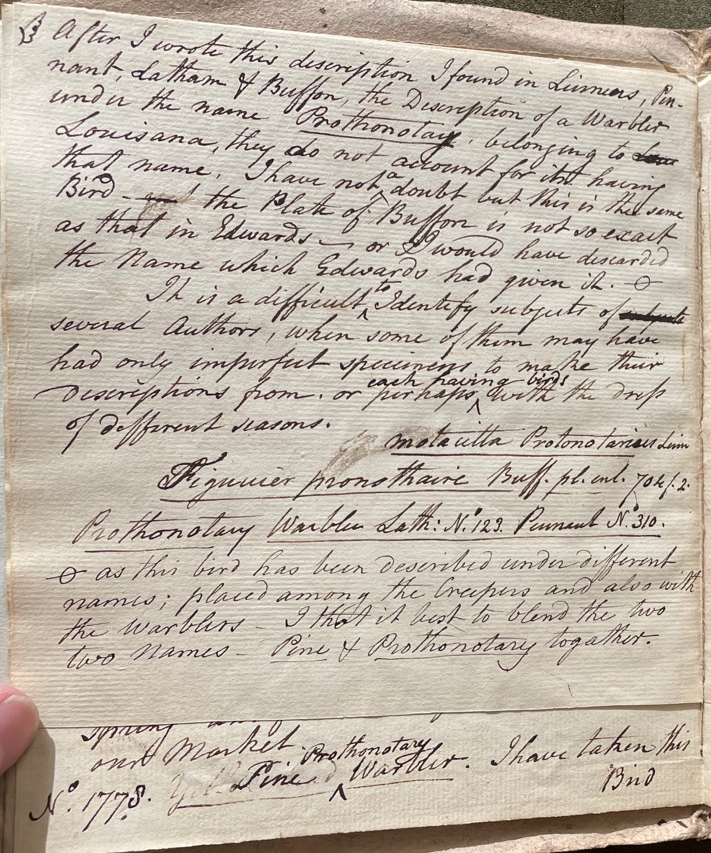 After I wrote this discription I found in Linneus, Pen-
nant, Latham & Buffon, the Description of a Warbler
under the name Prothonotary, belonging to
Louisana, they do not account for its having
that name. I have not a doubt but this is the same
Bird — the Plate of Buffon is not so exact
as that in Edwards — or I would have discarded
the Name which Edwards had given it.
It is a difficult to Identify subjects of
several Authors, when some of them may have
had only imperfect specimens to make their
discriptions from. or perhaps each having birds with the dress
of different seasons.
motacilla Protonotarius Linn
Figuier pronothaire Buff. pl. enl. 704 f. 2.
Prothonotary Warbler Lath: No. 123. Pennant No. 310.
as this bird has been described under different
names; placed among the Creepers and also with
the Warblers — I thot it best to blend the two
two names — Pine & Prothonotary together.
spring
our Market.
No. 1778. Pine Prothonotary Warbler. I have taken this
Bird